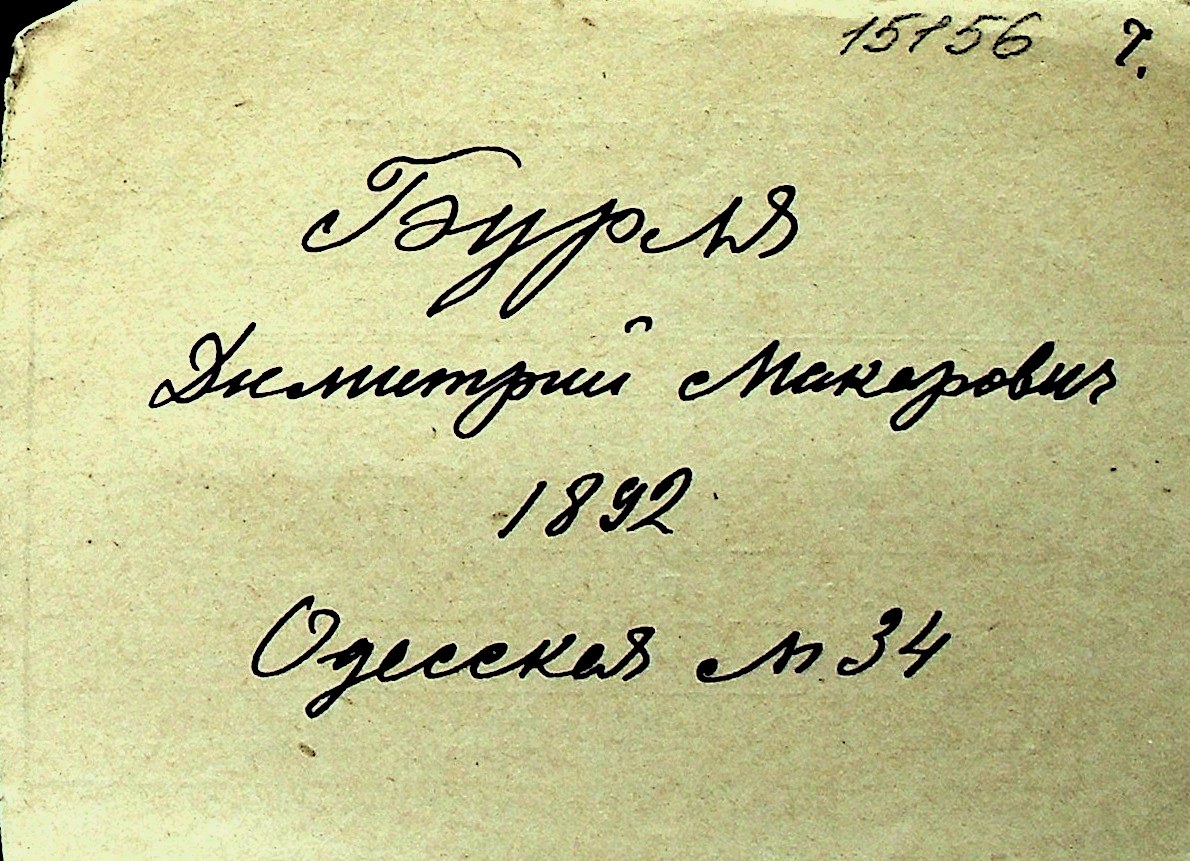 15156 7.
Бурля
Димитрий Макарович
1892
Одесская № 34